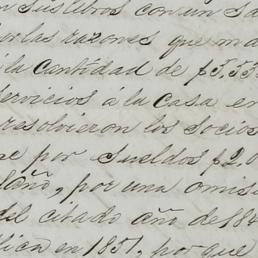 sus libros con un sa
las razones que ma
la Cantidad de $3.53
servicios á la Casa en
resolvieron los Socios
se por Sueldos $2.0
año, por una omisi
del citado año de 184
en 1851, por que